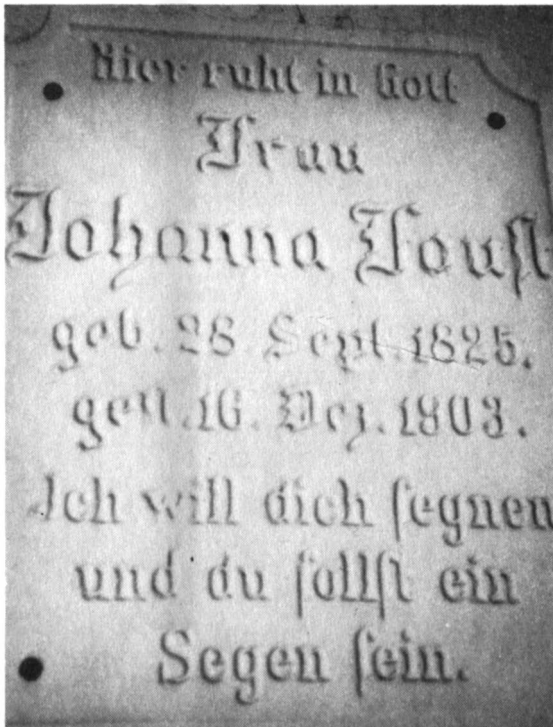 Hier ruht in Gott
Frau
Johanna Faust
geb. 28 Sept. 1825.
gest. 16. Dez. 1903.
Ich will dich segnen
und du sollst ein
Segen sein.